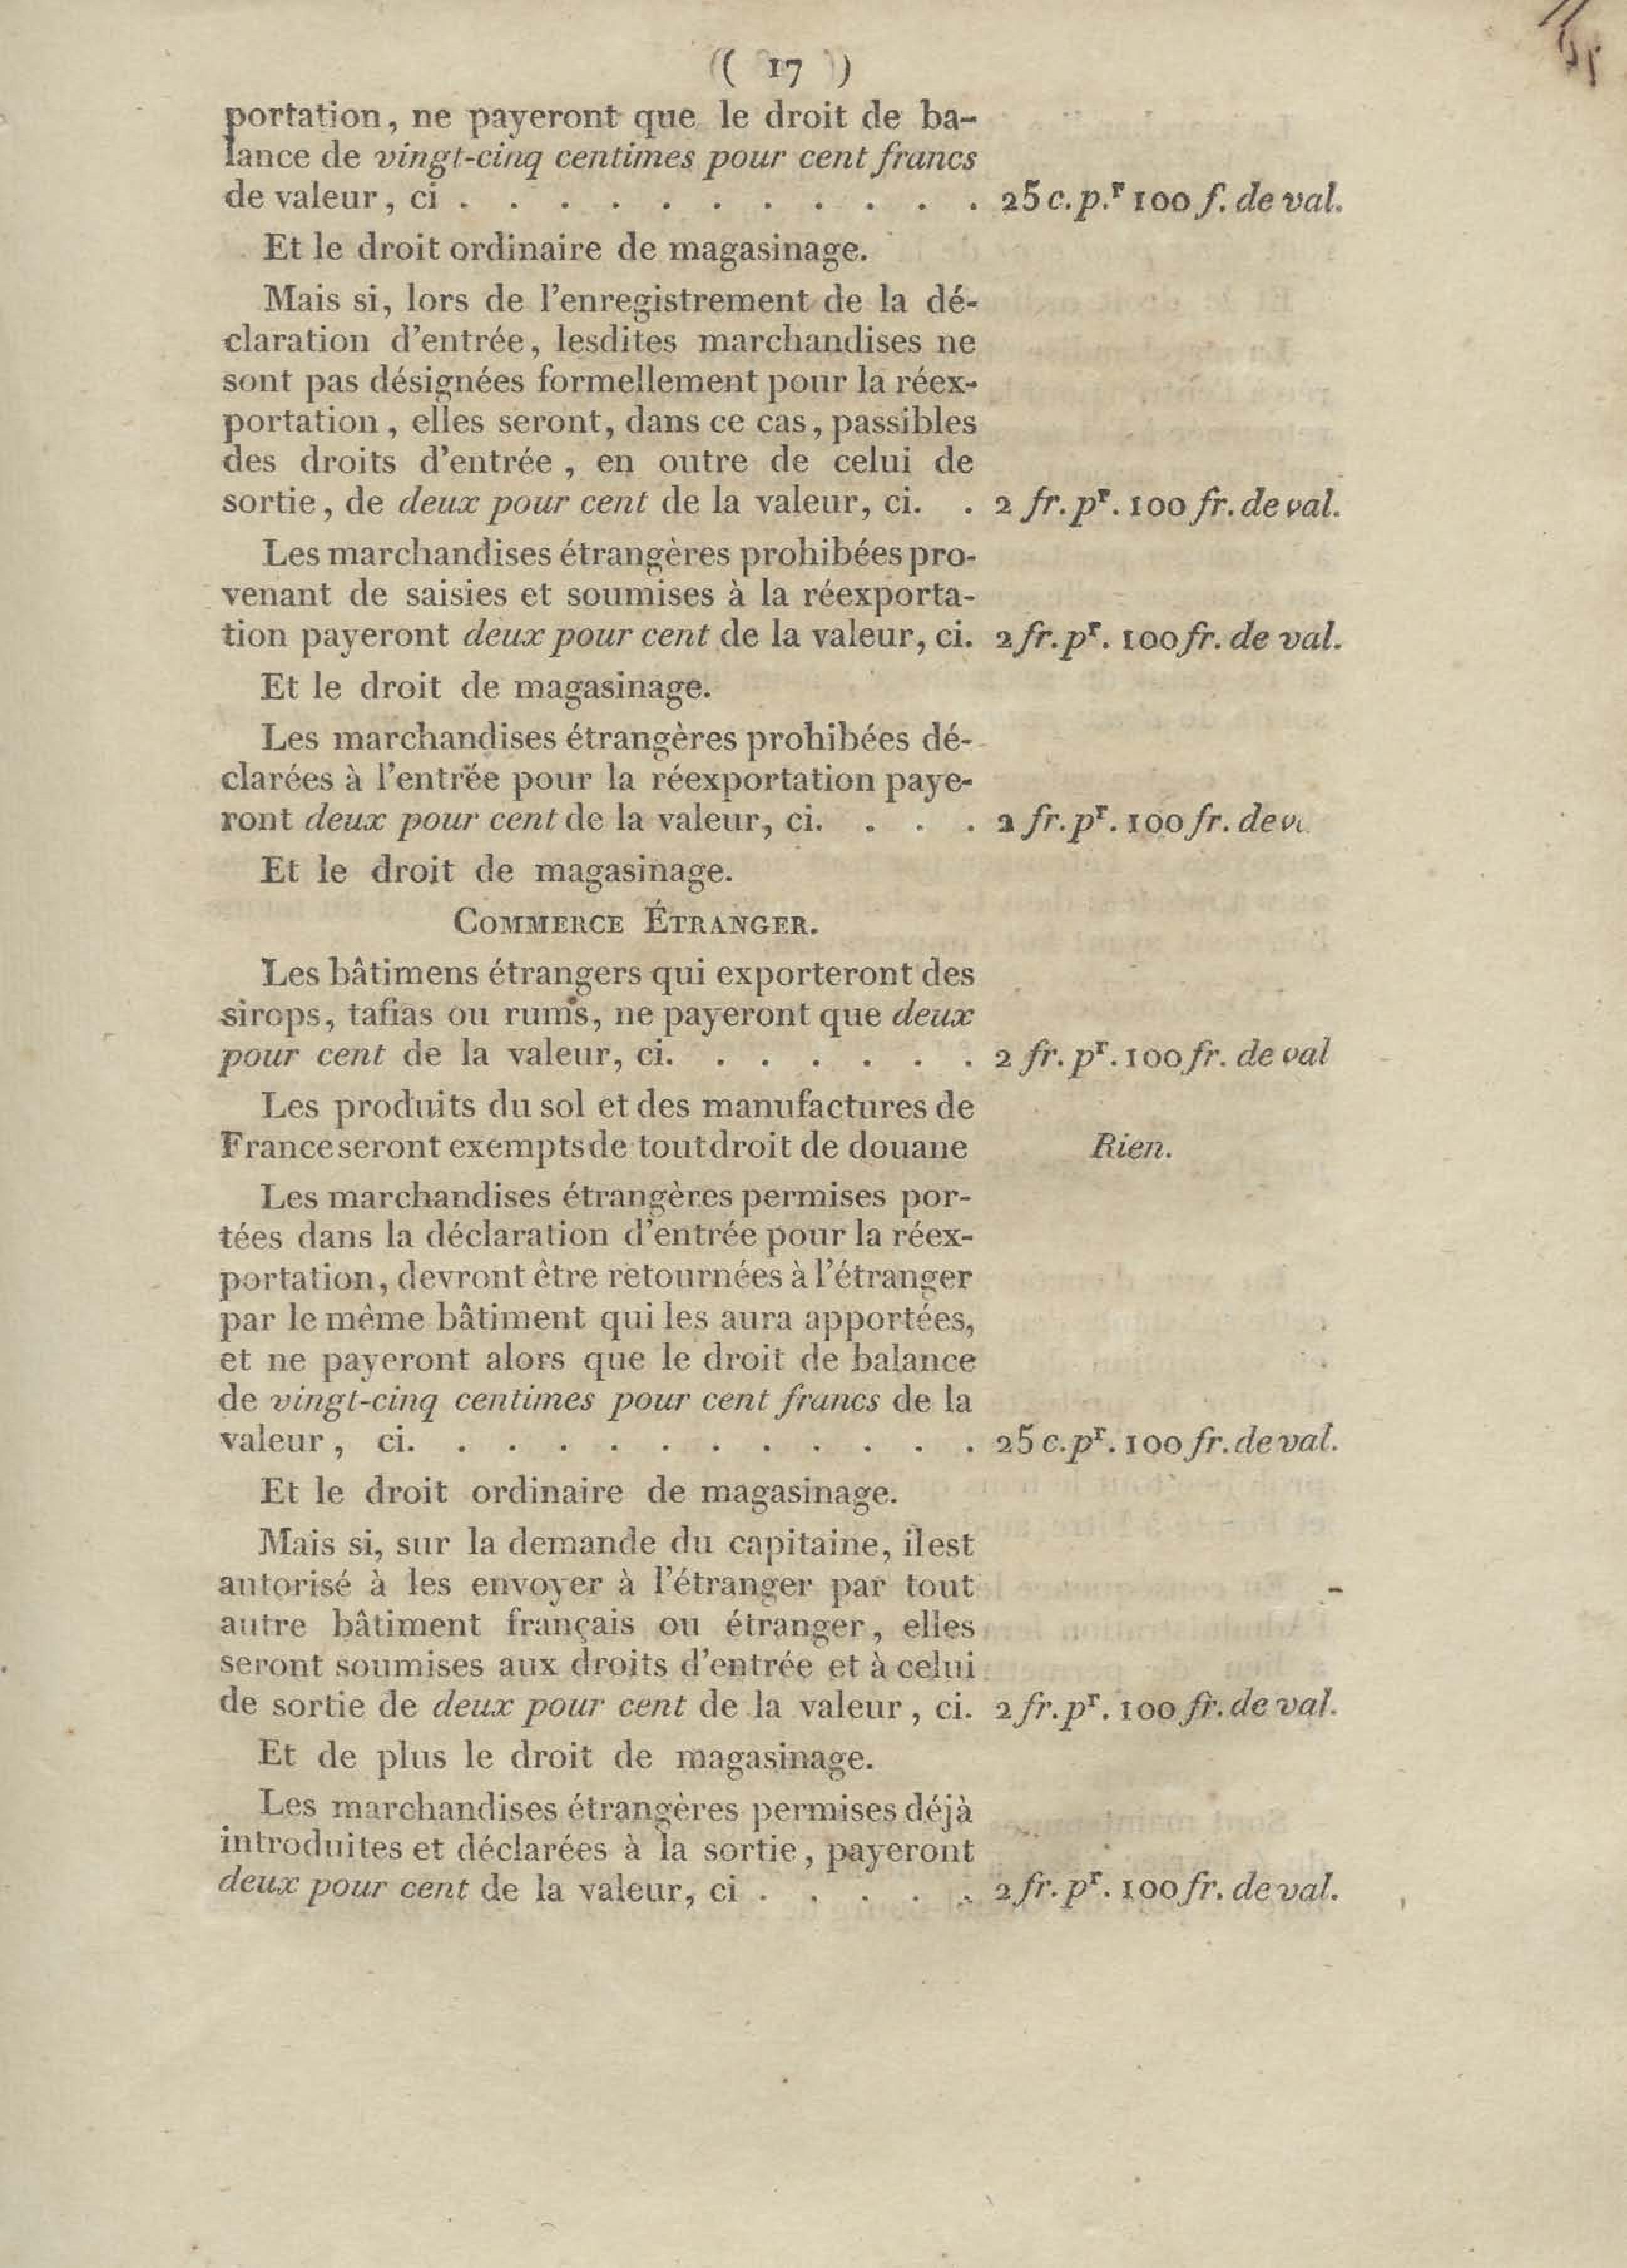 ( 17 )
portation, ne payeront que le droit de ba-
lance de vingt-cinq centimes pour cent francs
de valeur, ci . . . . . . . . . . . 25 c. p.r 100 f. de val.
Et le droit ordinaire de magasinage.
Mais si, lors de l'enregistrement de la dé-
claration d'entrée, lesdites marchandises ne
sont pas désignées formellement pour la réex-
portation, elles seront, dans ce cas, passibles
des droits d'entrée, en outre de celui de
sortie, de deux pour cent de la valeur, ci. . 2 fr. pr. 100 fr. de val.
Les marchandises étrangères prohibées pro-
venant de saisies et soumises à la réexporta-
tion payeront deux pour cent de la valeur, ci. 2 fr. pr. 100 fr. de val.
Et le droit de magasinage.
Les marchandises étrangères prohibées dé-
clarées à l'entrée pour la réexportation paye-
ront deux pour cent de la valeur, ci. . . . 2 fr. pr. 100 fr. de
Et le droit de magasinage.
COMMERCE ÉTRANGER.
Les bâtimens étrangers qui exporteront des
sirops, tafias ou rums, ne payeront que deux
pour cent de la valeur, ci. . . . . . . 2 fr. pr. 100 fr. de val
Les produits du sol et des manufactures de
France seront exempts de tout droit de douane Rien.
Les marchandises étrangères permises por-
tées dans la déclaration d'entrée pour la réex-
portation, devront être retournées à l'étranger
par le même bâtiment qui les aura apportées,
et ne payeront alors que le droit de balance
de vingt-cinq centimes pour cent francs de la
valeur, ci. . . . . . . . . . . . 25 c. pr. 100 fr. de val.
Et le droit ordinaire de magasinage.
Mais si, sur la demande du capitaine, il est
autorisé à les envoyer à l'étranger par tout
autre bâtiment français ou étranger, elles
seront soumises aux droits d'entrée et à celui
de sortie de deux pour cent de la valeur, ci. 2 fr. pr. 100 fr. de val.
Et de plus le droit de magasinage.
Les marchandises étrangères permises déjà
introduites et déclarées à la sortie, payeront
deux pour cent de la valeur, ci . . . . . 2 fr. pr. 100 fr. de val.